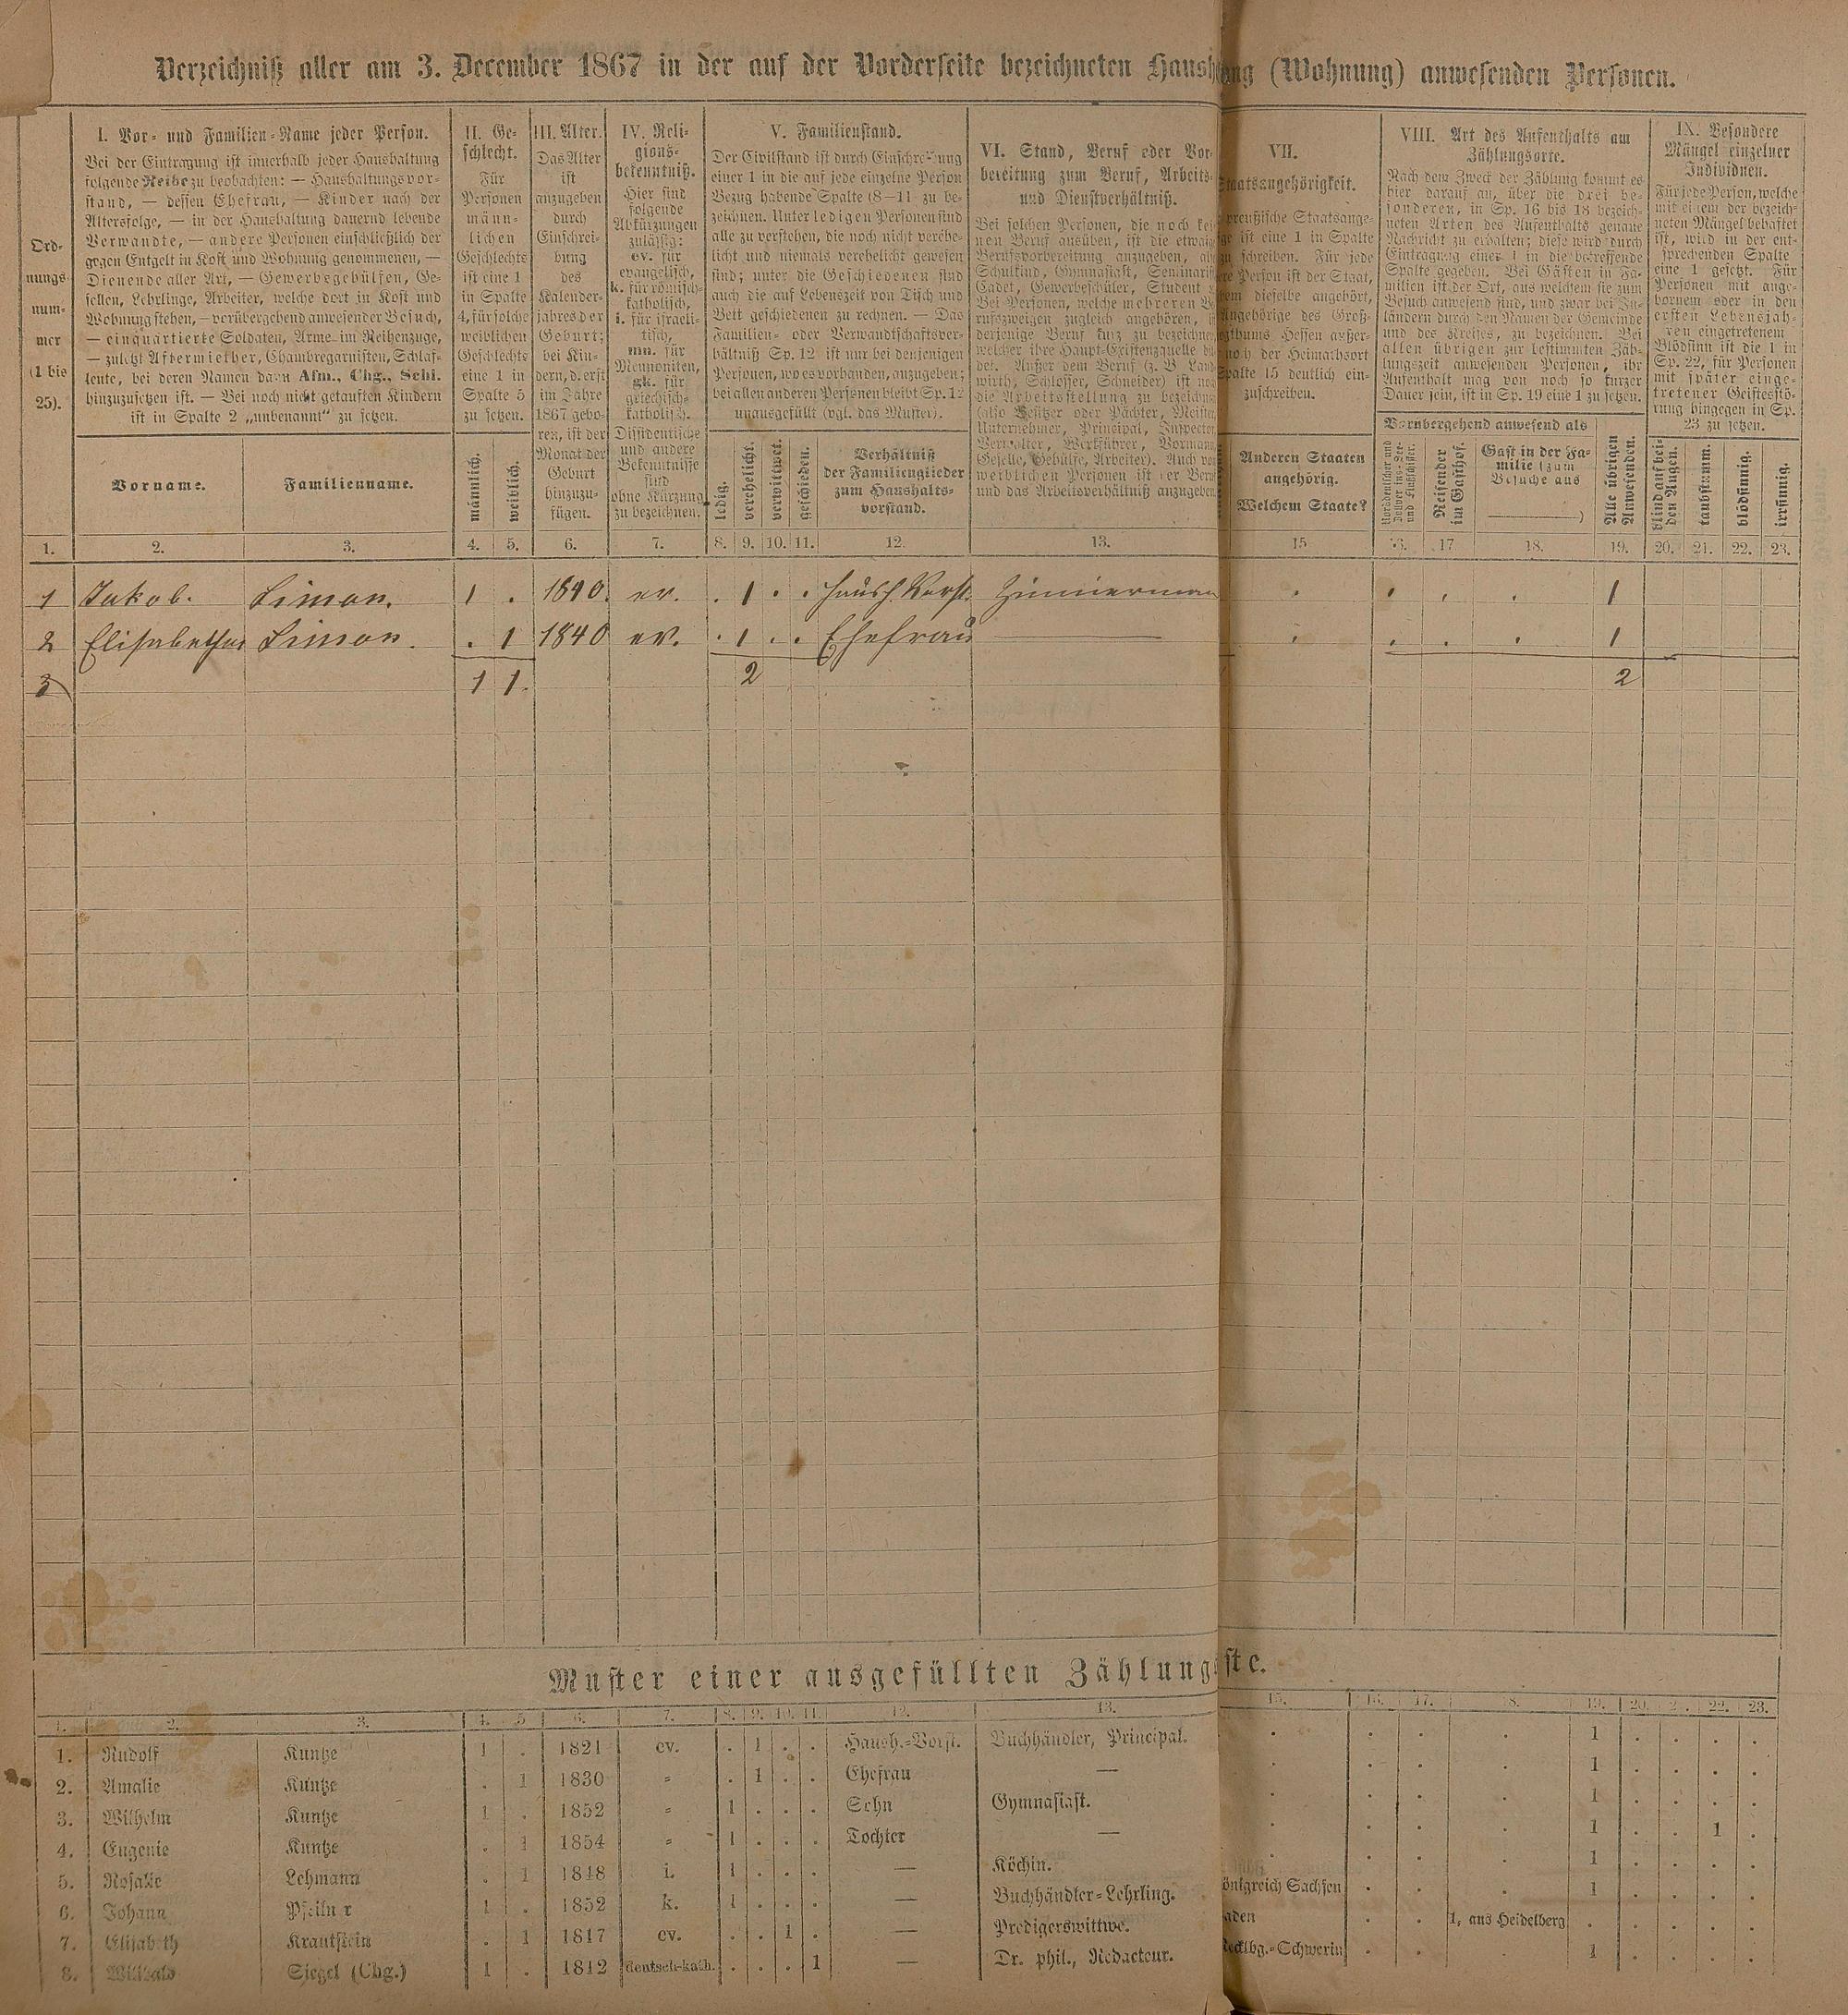 Verzeichniß aller am 3. December 1867 in der auf der Vorderseite bezeichneten Haushaltung (Wohnung) anwesenden Personen.
Ord-
nungs-
num-
mer
(1 bis
25).
I. Vor- und Familien-Name jeder Person.
Bei der Eintragung ist innerhalb jeder Haushaltung
folgende Reihe zu beobachten: — Haushaltungsvor-
stand, — dessen Ehefrau, — Kinder nach der
Altersfolge, — in der Haushaltung dauernd lebende
Verwandte, — andere Personen einschließlich der
gegen Entgelt in Kost und Wohnung genommenen, —
Dienende aller Art, — Gewerbsgehülfen, Ge-
sellen, Lehrlinge, Arbeiter, welche dort in Kost und
Wohnung stehen, — vorübergehend anwesender Besuch,
— einquartierte Soldaten, Arme im Reihenzuge,
— zuletzt Aftermiether, Chambregarnisten, Schlaf-
leute, bei deren Namen dann Afm., Chg., Schl.
hinzuzusetzen ist. — Bei noch nicht getauften Kindern
ist in Spalte 2 „unbenannt“ zu setzen.
Vorname.
Familienname.
II. Ge-
schlecht.
Für
Personen
männ-
lichen
Geschlechts
ist eine 1
in Spalte
4, für solche
weiblichen
Geschlechts
eine 1 in
Spalte 5
zu setzen.
männlich.
weiblich.
III. Alter.
Das Alter
ist
anzugeben
durch
Einschrei-
bung
des
Kalender-
jahres der
Geburt;
bei Kin-
dern, d. erst
im Jahre
1867 gebo-
ren, ist der
Monat der
Geburt
hinzuzu-
fügen.
IV. Reli-
gions-
bekenntniß.
Hier sind
folgende
Abkürzungen
zulässig:
ev. für
evangelisch,
k. für römisch-
katholisch,
i. für israeli-
tisch,
mn. für
Mennoniten,
gk. für
griechisch-
katholisch.
Dissidentische
und andere
Bekenntnisse
sind
ohne Kürzung
zu bezeichnen.
V. Familienstand.
Der Civilstand ist durch Einschreibung
einer 1 in die auf jede einzelne Person
Bezug habende Spalte (8—11) zu be-
zeichnen. Unter ledigen Personen sind
alle zu verstehen, die noch nicht verehe-
licht und niemals verehelicht gewesen
sind; unter die Geschiedenen sind
auch die auf Lebenszeit von Tisch und
Bett geschiedenen zu rechnen. — Das
Familien- oder Verwandtschaftsver-
hältniß Sp. 12 ist nur bei denjenigen
Personen, wo es vorhanden, anzugeben;
bei allen anderen Personen bleibt Sp. 12
unausgefüllt (vgl. das Muster).
ledig.
verehelicht.
verwittwet.
geschieden.
Verhältniß
der Familienglieder
zum Haushalts-
vorstand.
VI. Stand, Beruf oder Vor-
bereitung zum Beruf, Arbeits-
und Dienstverhältniß.
Bei solchen Personen, die noch kei-
nen Beruf ausüben, ist die etwaige
Berufsvorbereitung anzugeben, als
Schulkind, Gymnasiast, Seminarist
Cadet, Gewerbeschüler, Student
Bei Personen, welche mehreren Be-
rufszweigen zugleich angehören,
derjenige Beruf kurz zu bezeichnen,
welcher ihre Haupt-Existenzquelle bil-
det. Außer dem Beruf (z. B. Land-
wirth, Schlosser, Schneider) ist noch
die Arbeitsstellung zu bezeichnen
(also Besitzer oder Pächter, Meister,
Unternehmer, Principal, Inspector,
Verwalter, Werkführer, Vormann,
Geselle, Gehülfe, Arbeiter). Auch von
weiblichen Personen ist der Beruf
und das Arbeitsverhältniß anzugeben.
VII.
Staatsangehörigkeit.
preußische Staatsange-
ge ist eine 1 in Spalte
zu schreiben. Für jede
re Person ist der Staat,
dem dieselbe angehört,
Angehörige des Groß-
gthums Hessen außer-
noch der Heimathsort
Spalte 15 deutlich ein-
zuschreiben.
Anderen Staaten
angehörig.
Welchem Staate?
VIII. Art des Aufenthalts am
Zählungsorte.
Nach dem Zweck der Zählung kommt es
hier darauf an, über die drei be-
sonderen, in Sp. 16 bis 18 bezeich-
neten Arten des Aufenthalts genaue
Nachricht zu erhalten; diese wird durch
Eintragung einer 1 in die betreffende
Spalte gegeben. Bei Gästen in Fa-
milien ist der Ort, aus welchem sie zum
Besuch anwesend sind, und zwar bei In-
ländern durch den Namen der Gemeinde
und des Kreises, zu bezeichnen. Bei
allen übrigen zur bestimmten Zäh-
lungszeit anwesenden Personen, ihr
Aufenthalt mag von noch so kurzer
Dauer sein, ist in Sp. 19 eine 1 zu setzen.
Vorübergehend anwesend als
Reisender
im Gasthof.
Gast in der Fa-
milie (zum
Besuche aus
)
Alle übrigen
Anwesenden.
IX. Besondere
Mängel einzelner
Individuen.
Für jede Person, welche
mit einem der bezeich-
neten Mängel behaftet
ist, wird in der ent-
sprechenden Spalte
eine 1 gesetzt. Für
Personen mit ange-
bornem oder in den
ersten Lebensjah-
ren eingetretenem
Blödsinn ist die 1 in
Sp. 22, für Personen
mit später einge-
tretener Geistesstö-
rung hingegen in Sp.
23 zu setzen.
blind auf bei-
den Augen.
taubstumm.
blödsinnig.
irrsinnig.
1. 2. 3. 4. 5. 6. 7. 8. 9. 10. 11. 12. 13. 15 16. 17 18. 19. 20. 21. 22. 23.
1 Jakob. Simon. 1 . 1840. ev. . 1 . . Haush. Vorst. Zimmermann . . . . 1
2 Elisabetha Simon. . 1 1840 ev. . 1 . . Ehefrau — . . . . 1
3 1 1. 2 2
Muster einer ausgefüllten Zählungsliste.
1. 2. 3. 4. 5 6. 7. 8. 9. 10. 11. 12. 13. 15. 16. 17. 18. 19. 20. 2. 22. 23.
1. Rudolf Kuntze 1 . 1821 ev. . 1 . . Haush.-Vorst. Buchhändler, Principal. . . . . 1 . . . .
2. Amalie Kuntze . 1 1830 " . 1 . . Ehefrau — . . . . 1 . . . .
3. Wilhelm Kuntze 1 . 1852 " 1 . . . Sohn Gymnasiast. . . . . 1 . . . .
4. Eugenie Kuntze . 1 1854 " 1 . . . Tochter — . . . . 1 . . 1 .
5. Rosalie Lehmann . 1 1848 i. 1 . . . — Köchin. . . . . 1 . . . .
6. Johann Pfeilner 1 . 1852 k. 1 . . . — Buchhändler-Lehrling. önigreich Sachsen . . . 1 . . . .
7. Elisabeth Krautstein . 1 1817 ev. . . 1 . — Predigerswittwe. aden . . 1, aus Heidelberg . . . . .
8. Willibald Siegel (Chg.) 1 . 1812 deutsch-kath. . . . 1 — Dr. phil., Redacteur. ecklbg.-Schwerin . . . 1 . . . .